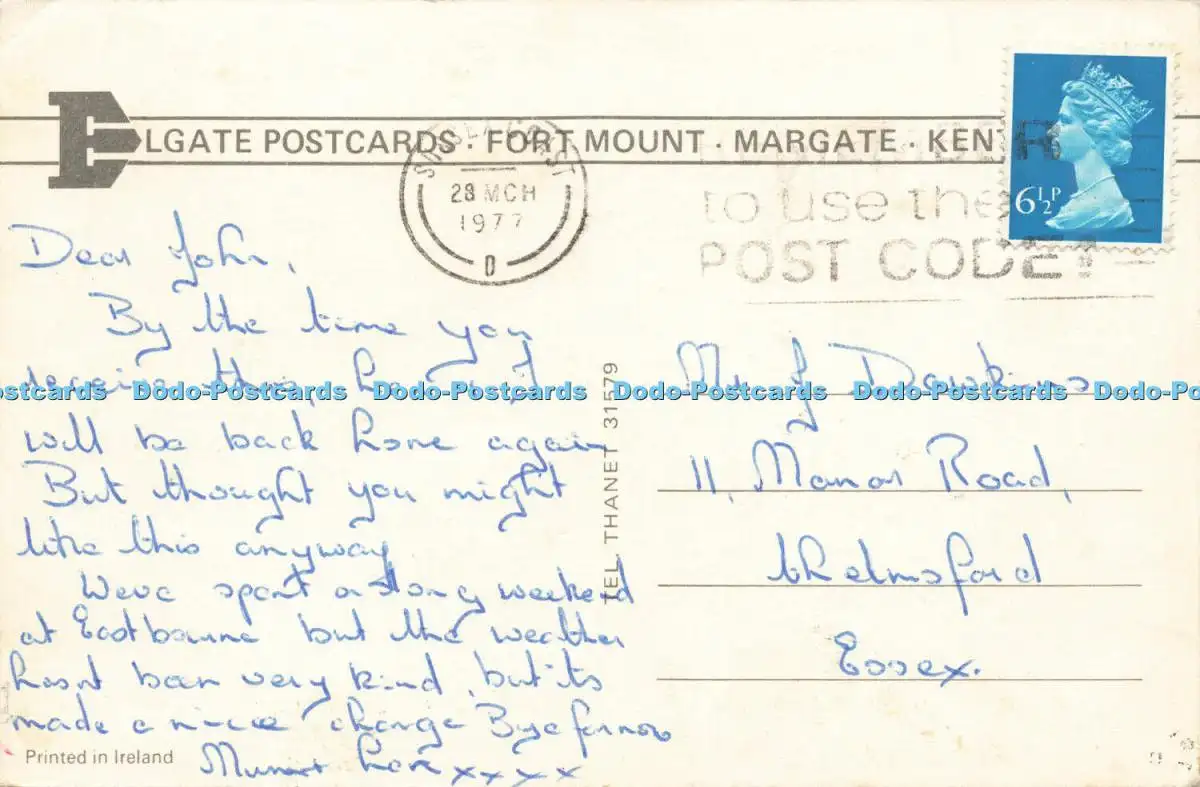 ELGATE POSTCARDS · FORT MOUNT · MARGATE · KENT
28 MCH
1977
D
to use the
POST CODE!
6½P
Dear John,
By the time you
receive this,
will be back home again
But thought you might
like this anyway
Weve spent a long weekend
at Eastbourne but the weather
hasnt been very kind, but its
made a nice change Bye for now
xxxx
Printed in Ireland
TEL. THANET 31579
Mr J Dawkins
11, Manor Road,
Chelmsford
Essex.
Dodo-Postcards Dodo-Postcards Dodo-Postcards Dodo-Postcards Dodo-Postcards